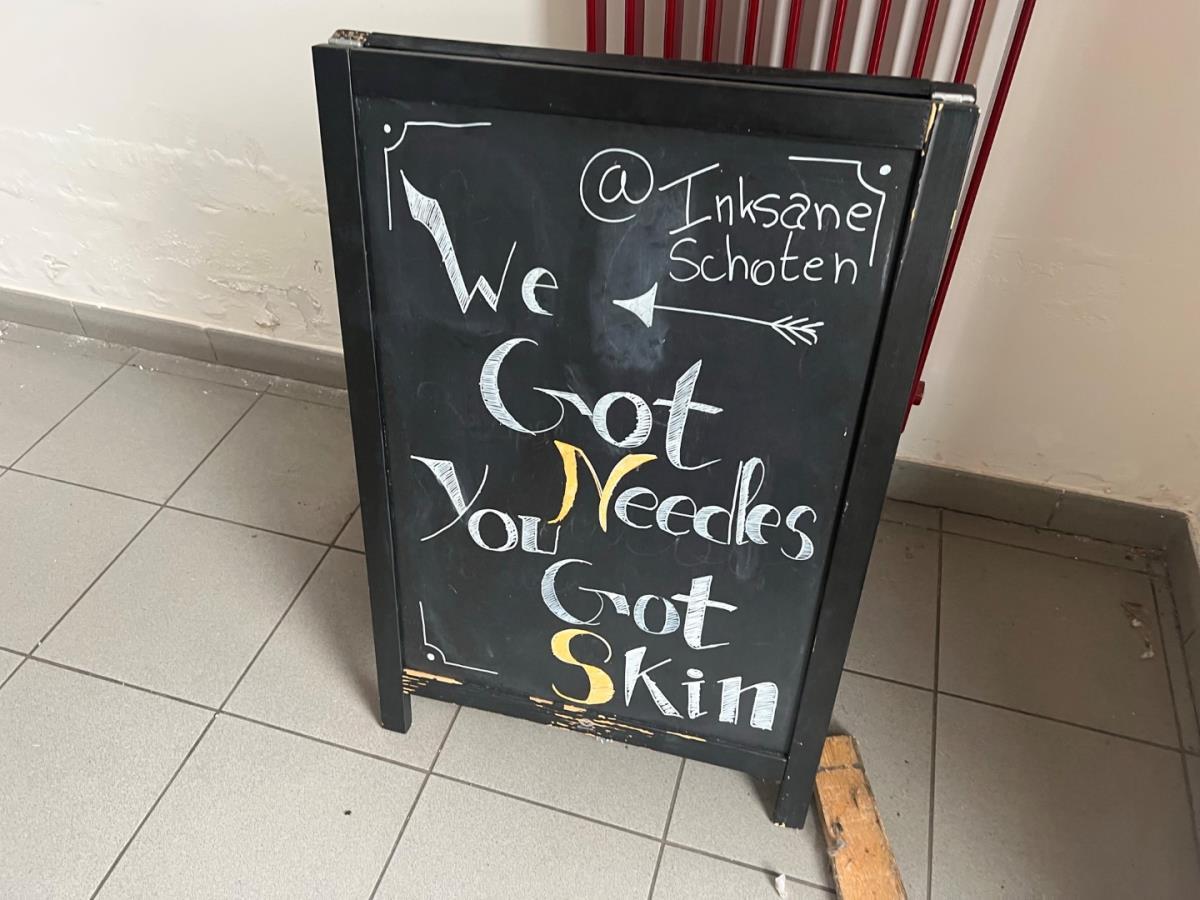 @ Inksane
Schoten
We
Got
Needles
You
Got
Skin